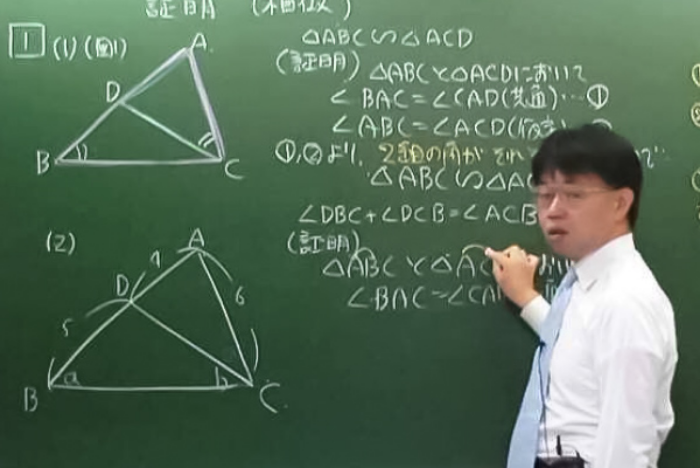 証明 (相似)
1 (1) (図1)
A
D
B
C
(2)
A
4
D
6
5
a
b
B
C
△ABC∽△ACD
(証明) △ABCと△ACDにおいて
∠BAC=∠CAD(共通)…①
∠ABC=∠ACD(仮定)
①,②より, 2組の角がそれぞれ
△ABC∽△AC
∠DBC+∠DCB=∠ACB
(証明)
△ABCと△AC おい
∠BAC=∠CA